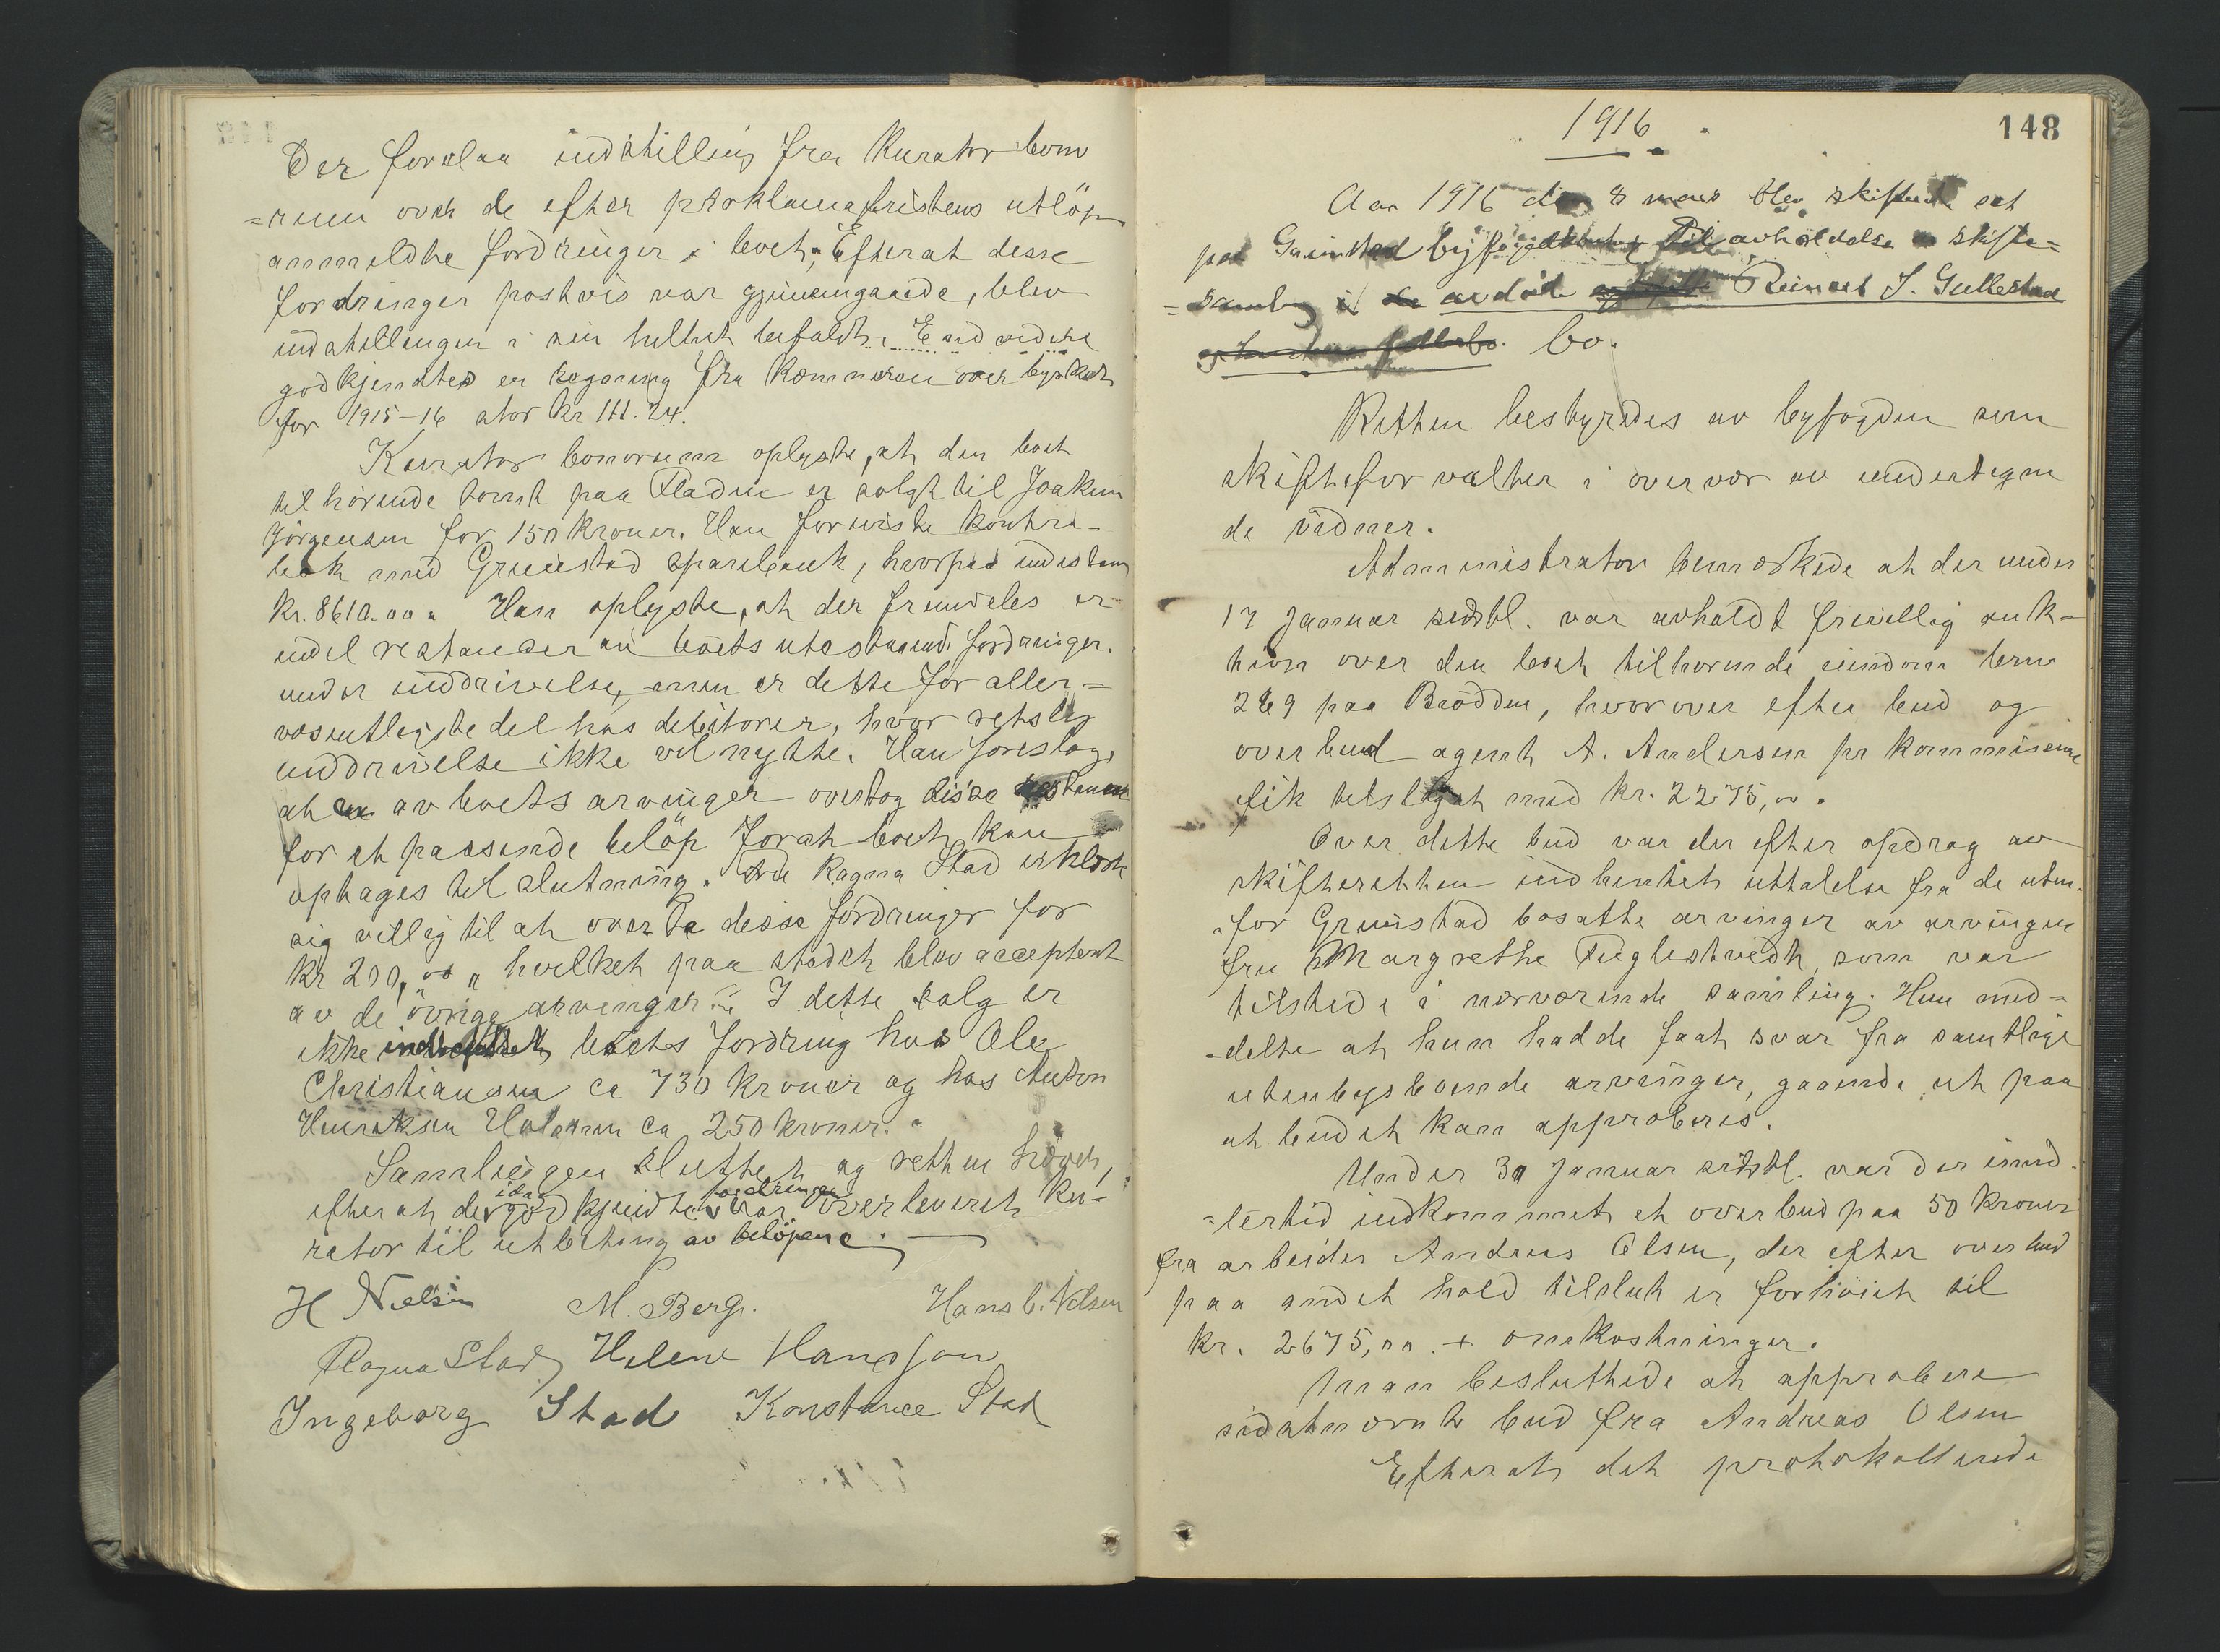 Der forelaa indstilling fra kurator bono
=rum over de efter proklamafristens utløp
anmeldte fordringer i boet. Efterat desse
fordringer postvis var gjennemgaaede, blev
indstillingen i sin helhet bifaldt. End videre
godkjendtes en regning fra kæmneren over byskat
for 1915-16 stor kr 111.24.
Kurator bonorum oplyste, at den boet
tilhørende tomt paa Fladen er solgt til Joakim
Jørgensen for 150 kroner. Han foreviste kontra-
bok med Grimstad Sparebank, hvorpaa indestaar
kr. 8610.00. Han oplyste, at der fremdeles er
endel restancer av boets utestaaende fordringer
under inddrivelse, men er dette for aller=
væsentligste del hos debitorer, hvor retslig
inddrivelse ikke vil nytte. Han foreslog,
at en av boets arvinger overtog disse restancer
for et passende beløp forat boet kan
optages til slutning. Fru Ragna Stad erklærte
sig villig til at overta desse fordringer for
kr 200,00, hvilket paa stedet blev acceptert
av de øvrige arvinger. I dette salg er
ikke indbefattet boets fordring hos Ole
Christiansen ca 730 kroner og hos Anton
Henriksen ca 250 kroner.
Samlingen sluttet og retten hævet,
efterat de idag godkjendte fordringer var overleveret ku-
rator til utbetaling av beløpene.
H Nielsen M. Berg. Hans C. Nilsen
Ragna Stad Helene Hansson
Ingeborg Stad Konstance Stad
148
1916
Aar 1916 den 8 mars blev skifteret sat
paa Grimstad byfogedkontor til avholdelse av skifte=
=samling i avdøde Reinert J. Gullestad
bo.
Retten bestyredes av byfogden som
skifteforvalter i overvær av undertegne
de vidner.
Administrator bemerkede at der under
17 Januar sidstl. var avholdt frivillig auk-
tion over den boet tilhørende eiendom brno
269 paa Brødden, hvorover efter bud og
overbud agent A. Andersen pr kommission
fik tilslaget med kr. 2275,00.
Over dette bud var der efter opdrag av
skifteretten indhentet uttalelse fra de uten-
for Grimstad bosatte arvinger av arvingen
fru Margrethe Fuglestvedt, som var
tilstede i nærværende samling. Hun med=
-delte at hun hadde faat svar fra samtlige
utenbysboende arvinger, gaaende ut paa
at budet kan approberes.
Under 30 Januar sidstl. var der imid-
=lertid indkommet et overbud paa 50 kroner
fra arbeider Andreas Olsen, der efter overbud
paa andet hold tilslut er forhøiet til
kr. 2675,00. + omkostninger.
Man besluttede at approbere
sidstnævnte bud fra Andreas Olsen
Efterat det protokollerede